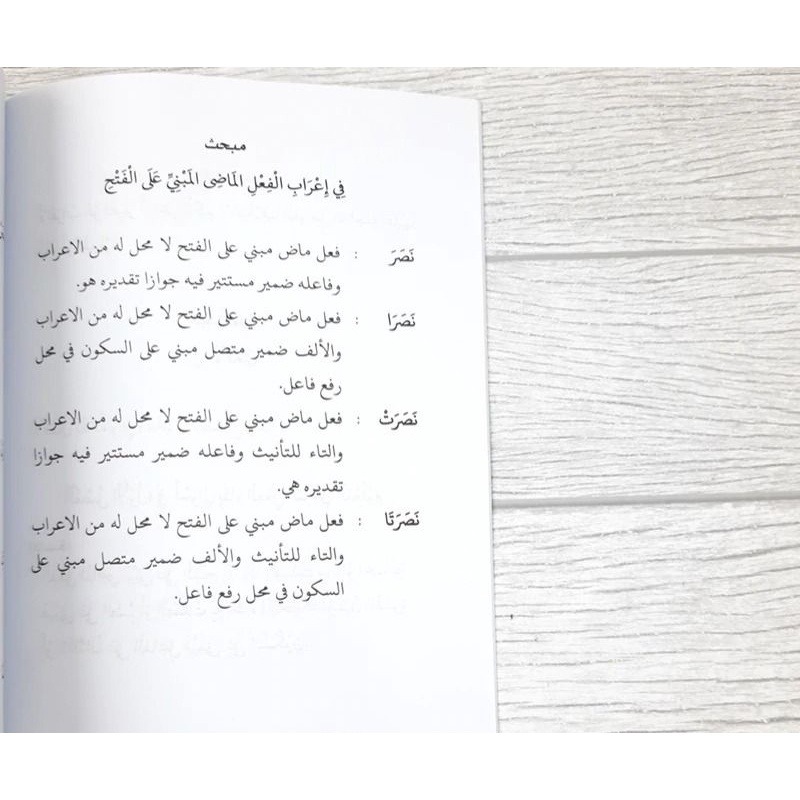 مبحث
فِي اِعْرَابِ الْفِعْلِ الْمَاضِى الْمَبْنِيِّ عَلَى الْفَتْحِ
نَصَرَ : فعل ماض مبني على الفتح لا محل له من الاعراب
وفاعله ضمير مستتير فيه جوازا تقديره هو.
نَصَرَا : فعل ماض مبني على الفتح لا محل له من الاعراب
والألف ضمير متصل مبني على السكون في محل
رفع فاعل.
نَصَرَتْ : فعل ماض مبني على الفتح لا محل له من الاعراب
والتاء للتأنيث وفاعله ضمير مستتير فيه جوازا
تقديره هي.
نَصَرَتَا : فعل ماض مبني على الفتح لا محل له من الاعراب
والتاء للتأنيث والألف ضمير متصل مبني على
السكون في محل رفع فاعل.